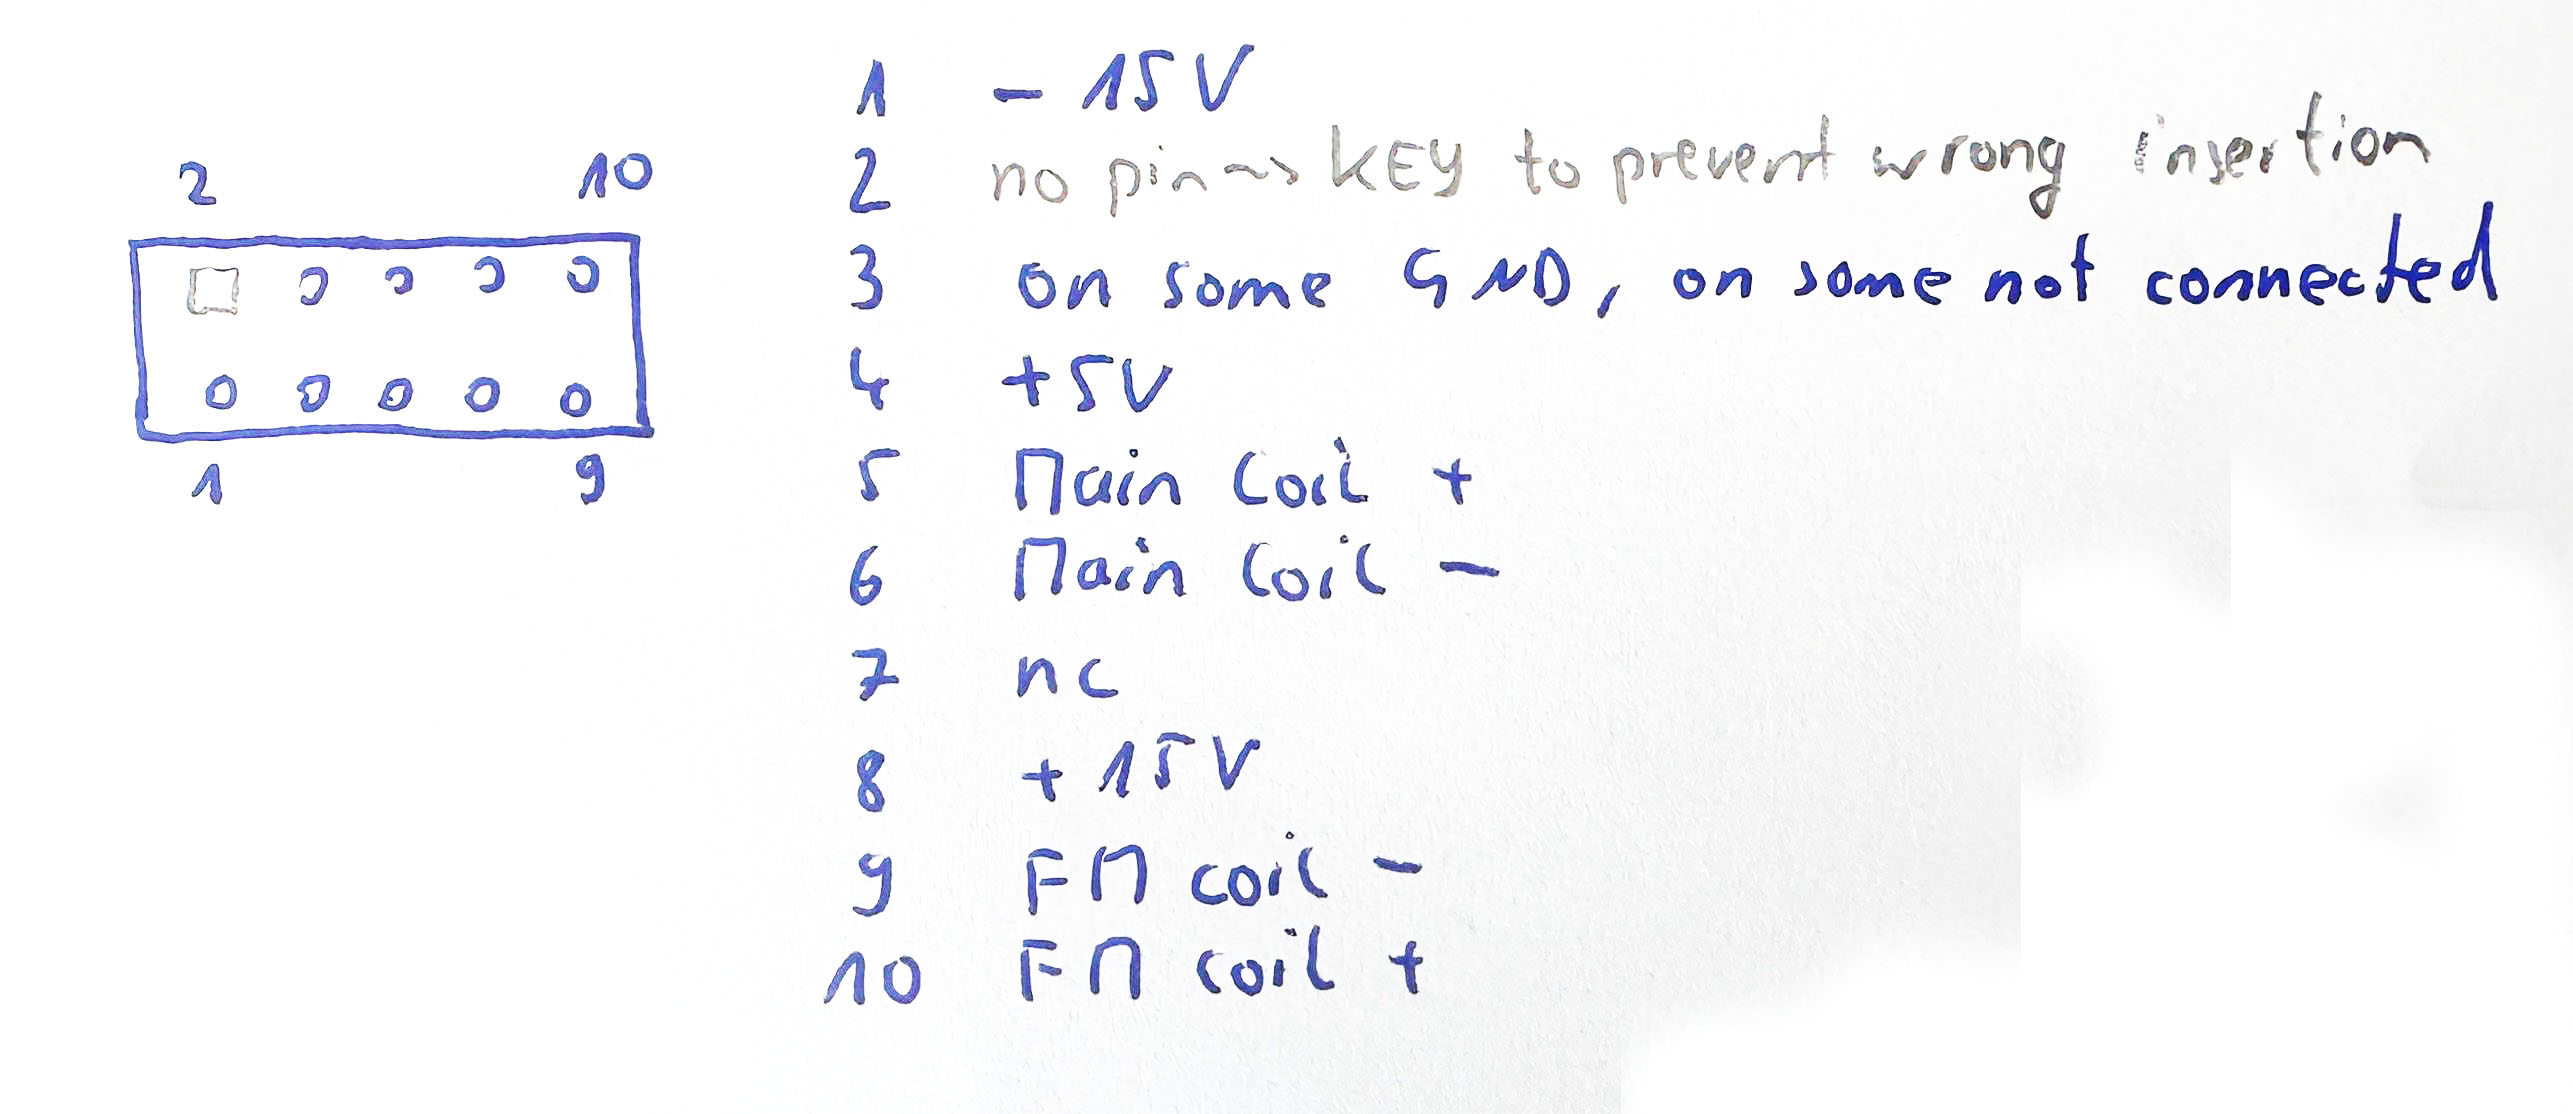 2 10
1 9
1 - 15V
2 no pin ~> KEY to prevent wrong insertion
3 on some GND, on some not connected
4 +5V
5 Main Coil +
6 Main Coil -
7 nc
8 + 15V
9 FM coil -
10 FM coil +